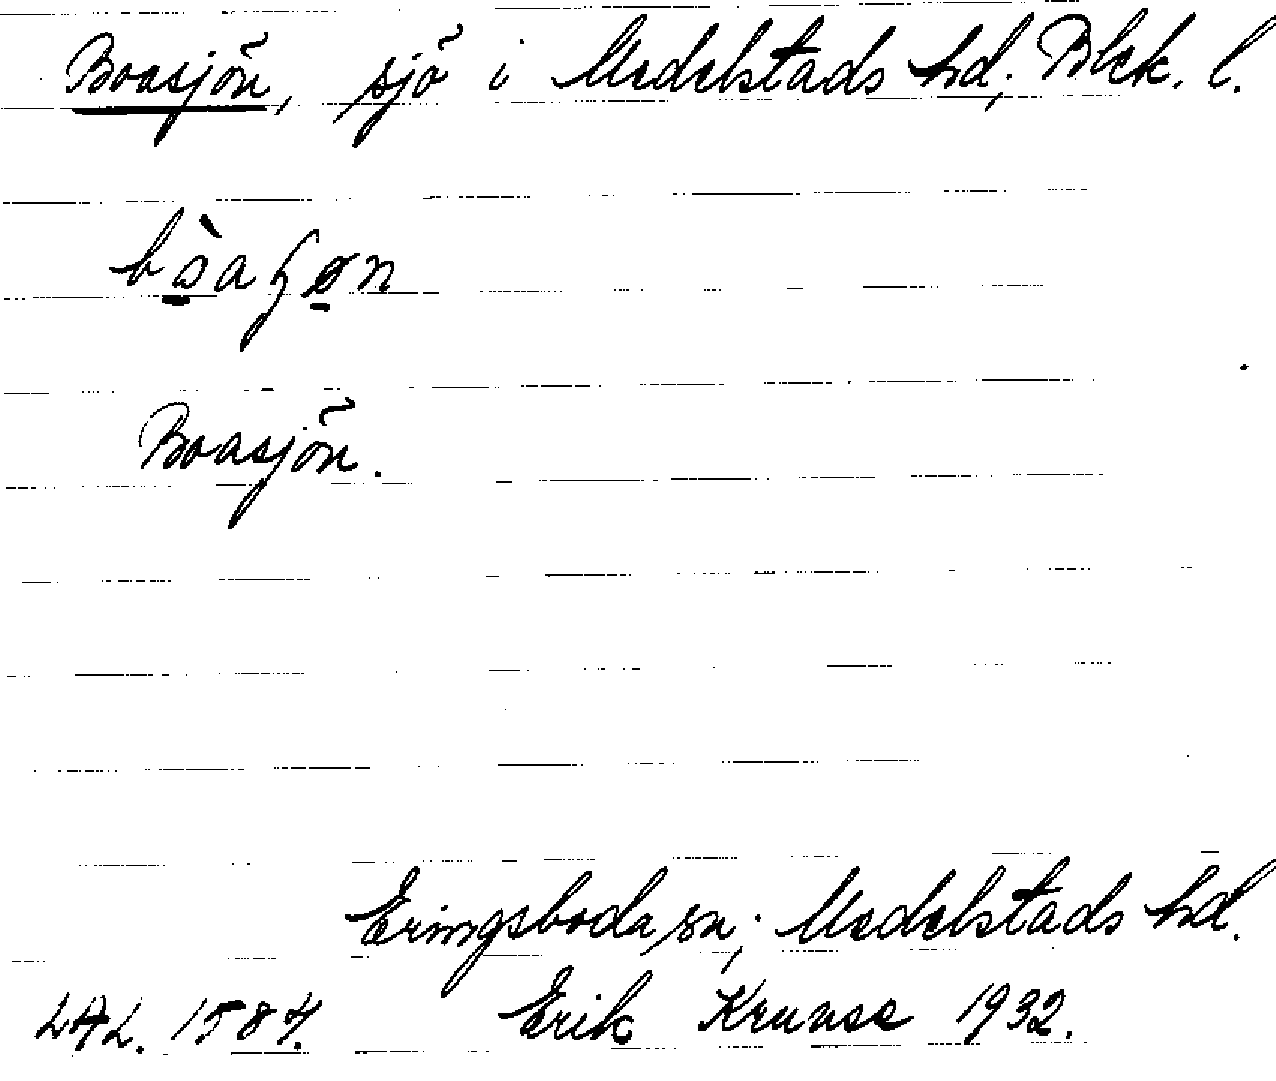 Boasjön, sjö i Medelstads hd, Blek. l.
Boasjön.
Eringsboda sn, Medelstads hd.
LAL. 1584. Erik Kruuse 1932.